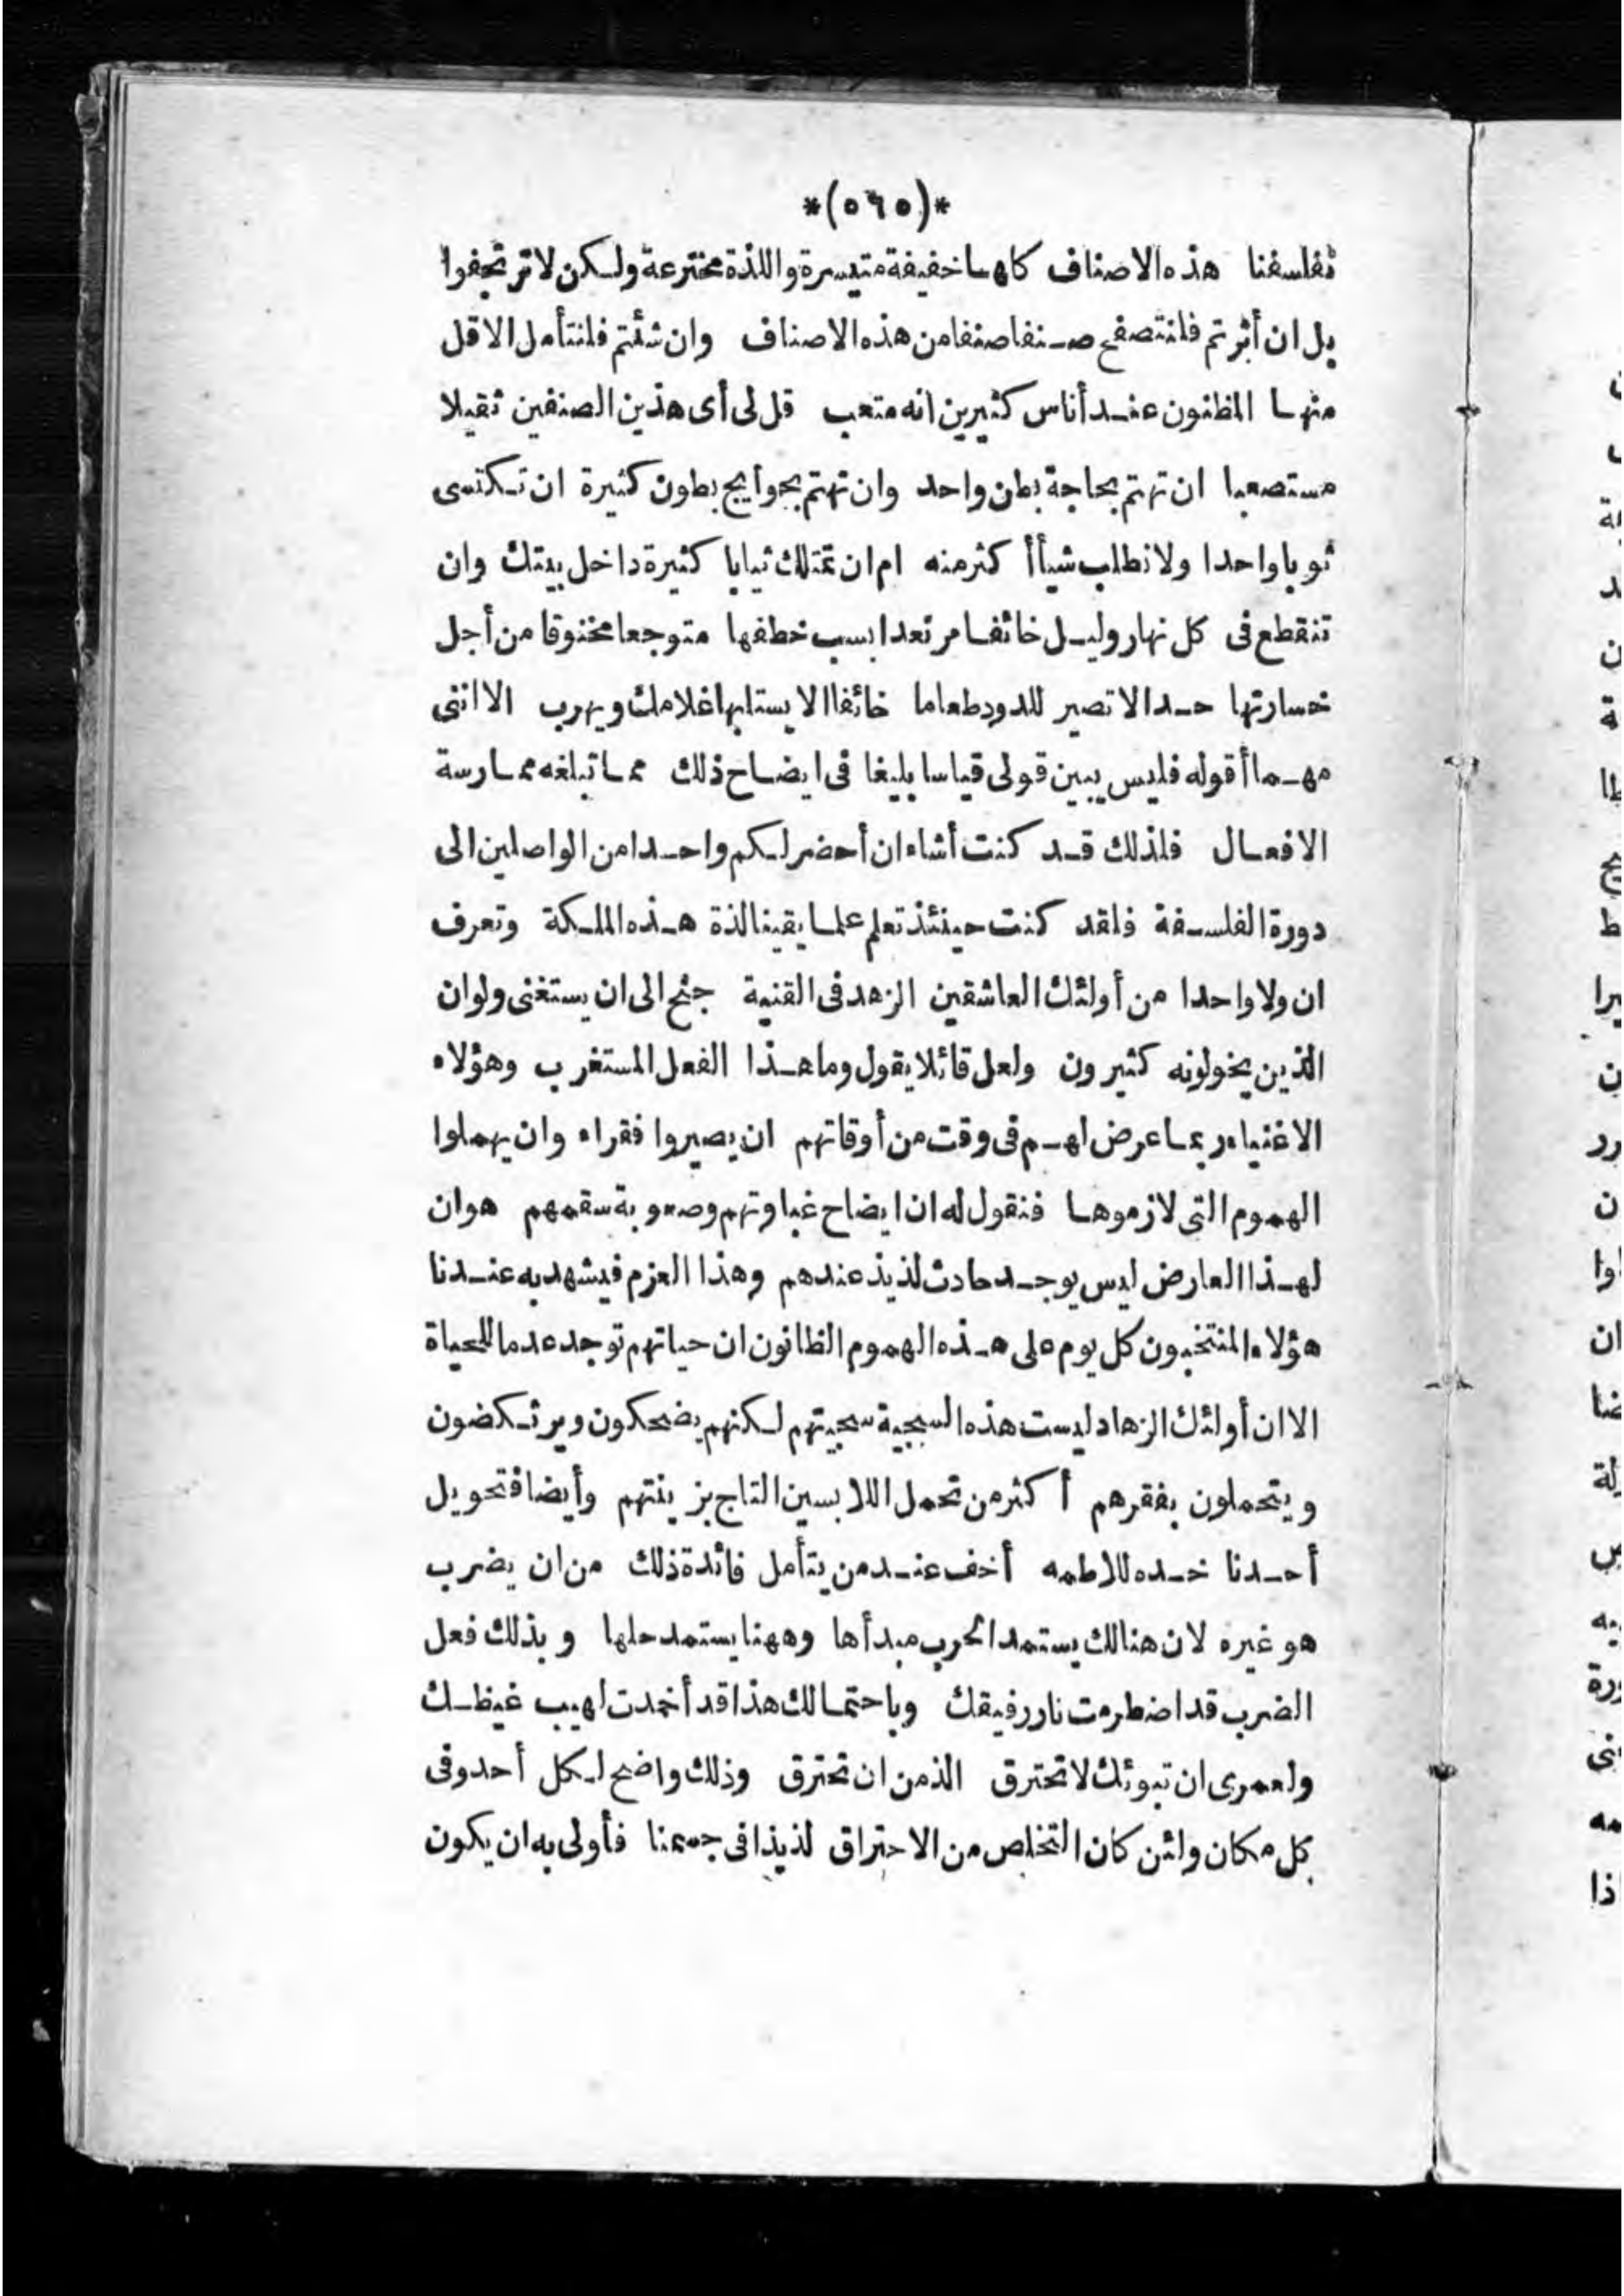 *(٥٦٥)*
تفلسفنا هذه الاصناف كلها خفيفة متيسرة واللذة مخترعة ولكن لا ترتجفوا
بل ان أثرتم فلنتصفح صنفا صنفا من هذه الاصناف وان شئتم فلنتأمل الاقل
منها المظنون عند أناس كثيرين انه متعب قل لى أى هذين الصنفين ثقيلا
مستصعبا ان تهتم بحاجة بطن واحد وان تهتم بجوايج بطون كثيرة ان تكتسى
ثوبا واحدا ولا تطلب شيأ أكثر منه ام ان تمتلك ثيابا كثيرة داخل بيتك وان
تنقطع فى كل نهار وليل خائفا مرتعدا بسبب خطفها متوجعا مخنوقا من أجل
خسارتها حدا لا تصير للدود طعاما خائفا الا يستلبها غلامك ويهرب الا اننى
مهما أقوله فليس يبين قولى قياسا بليغا فى ايضاح ذلك مما تبلغه ممارسة
الافعال فلذلك قد كنت أشاء ان أحضر لكم واحدا من الواصلين الى
دورة الفلسفة فلقد كنت حينئذ تعلم علما يقينا لذة هذه الملكة وتعرف
ان ولا واحدا من أولئك العاشقين الزهد فى القنية جنح الى ان يستغنى ولو ان
الذين يخولونه كثيرون ولعل قائلا يقول وما هذا الفعل المستغرب وهؤلاء
الاغنياء ربما عرض لهم فى وقت من أوقاتهم ان يصيروا فقراء وان يهملوا
الهموم التى لازموها فنقول له ان ايضاح غباوتهم وصعوبة سقمهم هو ان
لهذا العارض ليس يوجد حادث لذيذ عندهم وهذا العزم فيشهد به عندنا
هؤلاء المنتخبون كل يوم على هذه الهموم الظانون ان حياتهم توجد عدما للحياة
الا ان أولئك الزهاد ليست هذه السجية سجيتهم لكنهم يضحكون ويرتكضون
ويتحملون بفقرهم أكثر من تحمل اللابسين التاج بزينتهم وأيضا فتحويل
أحدنا خده للاطمه أخف عند من يتأمل فائدة ذلك من ان يضرب
هو غيره لان هنالك يستمد الحرب مبدأها وههنا يستمد حلها وبذلك فعل
الضرب قد اضطرمت نار رفيقك وباحتمالك هذا قد أخمدت لهيب غيظك
ولعمرى ان تبوئك لا تحترق الذ من ان تحترق وذلك واضح لكل أحد وفى
كل مكان ولئن كان التخلص من الاحتراق لذيذا فى جسمنا فأولى به ان يكون